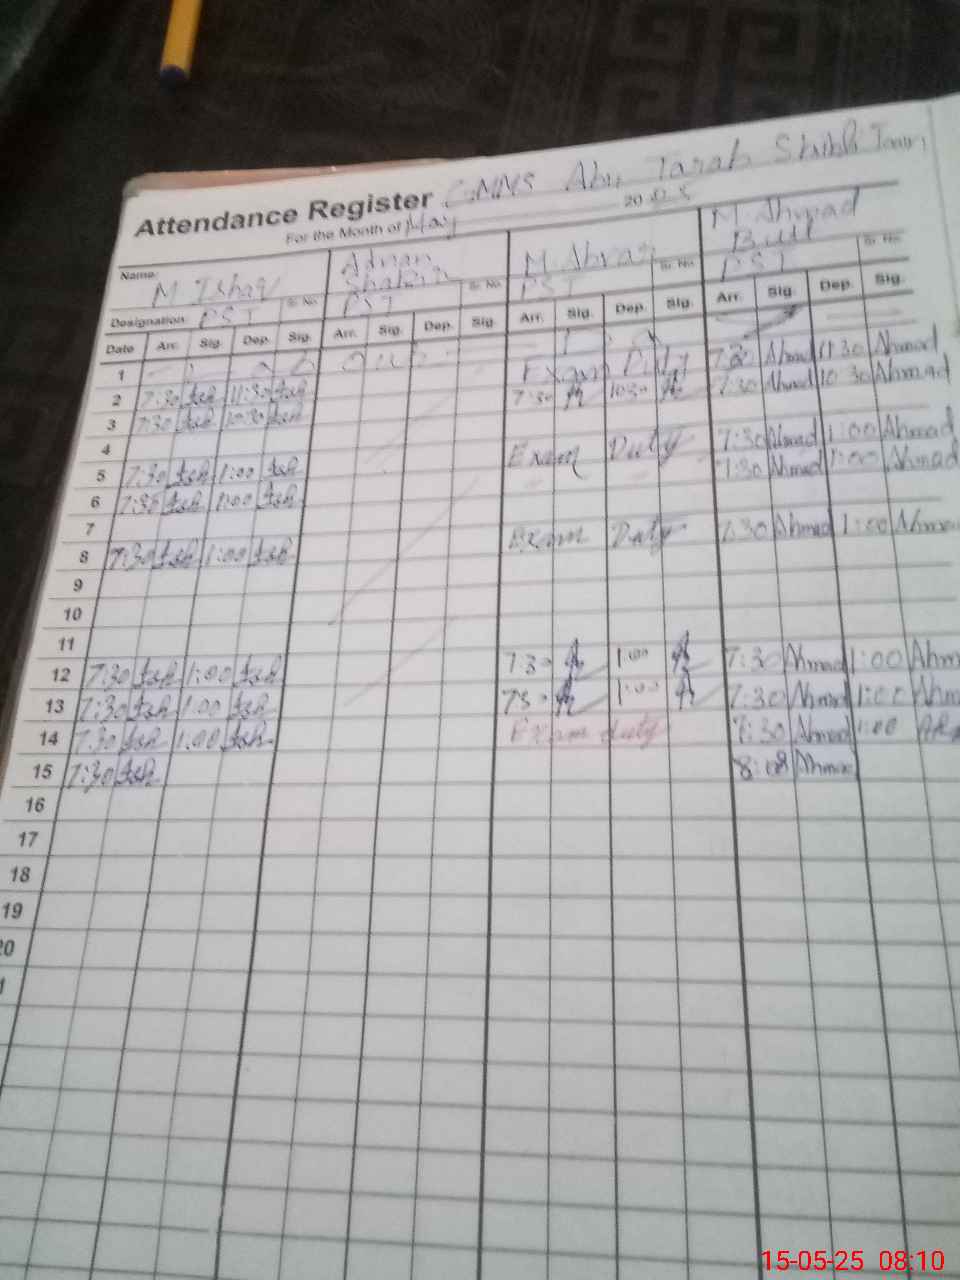 Attendance Register GMMS Abu Tarab Shibli Town
For the Month of May 20
Name:
M Ishaq Adnan M. M. Ahmad
Shabir Butt
Designation: PST Sr. No. PST Sr. No. PST Sr. No. PST Sr. No.
Date Arr. Sig. Dep. Sig. Arr. Sig. Dep. Sig. Arr. Sig. Dep. Sig. Arr. Sig. Dep. Sig.
1
2 7:30 Ish 11:30 Ish Exam Duty 7:30 Ahmad 11 30 Ahmad
3 7:30 Ish 10:30 Ish 7:30 10:30 7:30 Ahmad 10 30 Ahmad
4
5 7:30 Ish 1:00 Ish Exam Duty 7:30 Ahmad 1:00 Ahmad
6 7:30 Ish 1:00 Ish 7:30 Ahmad 1:00 Ahmad
7
8 7:30 Ish 1:00 Ish Exam Duty 7:30 Ahmad 1:00 Ahmad
9
10
11
12 7:30 Ish 1:00 Ish 7:30 1:00 7:30 Ahmad 1:00 Ahm
13 7:30 Ish 1:00 Ish 7:30 1:00 7:30 Ahmad 1:00 Ahm
14 7:30 Ish 1:00 Ish Exam duty 7:30 Ahmad 1:00
15 7:30 Ish 8:08 Ahmad
16
17
18
19
20
15-05-25 08:10